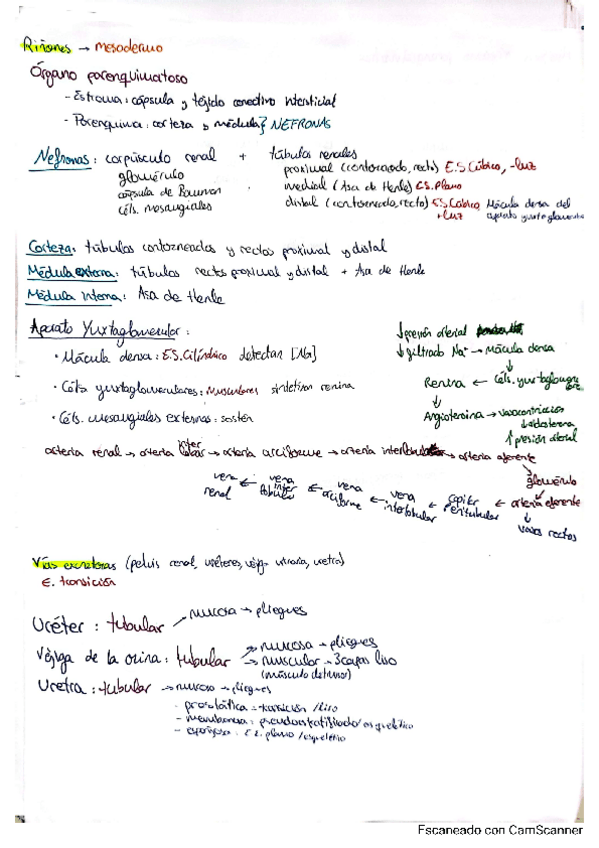 Riñones → mesodermo
Órgano parenquimatoso
- Estroma: cápsula y tejido conectivo intersticial
- Parenquima: corteza y médula} NEFRONAS
Nefronas: corpúsculo renal + túbulos renales
glomérulo
cápsula de Bowman
céls. mesangiales
proximal (contorneado, recto) E.S Cúbico, -luz
medial (Asa de Henle) E.S. Plano
distal (contorneado, recto) E.S. Cúbico +luz
Mácula densa del aparato yuxtaglomerular
Corteza: túbulos contorneados y rectos proximal y distal
Médula externa: túbulos rectos proximal y distal + Asa de Henle
Médula interna: Asa de Henle
Aparato Yuxtaglomerular:
· Mácula densa: E.S. Cilíndrico detectan [Na]
· Céls yuxtaglomerulares: musculares sintetizan renina
· Céls. mesangiales externas: sostén
↓ presión arterial
↓ filtrado Na⁺ → Mácula densa
↓
Renina ← Céls. yuxtaglomer
↓
Angiotensina → vasoconstricción
↓ aldosterona
↑ presión arterial
arteria renal → arteria inter lobar → arteria arciforme → arteria interlobular → arteria aferente
↓
glomérulo
↓
vena renal ← vena inter lobular ← vena arciforme ← vena interlobular ← capilar peritubular ← arteria eferente
↓
vasos rectos
Vías excretoras (pelvis renal, uréteres, vejiga urinaria, uretra)
E. transición
Uréter: tubular → mucosa → pliegues
Vejiga de la orina: tubular → mucosa → pliegues
→ muscular → 3 capas liso
(músculo detrusor)
Uretra: tubular → mucosa → pliegues
- prostática: transición / liso
- membranosa: pseudoestratificado / esquelético
- esponjosa: E.E. plano / esquelético
Escaneado con CamScanner